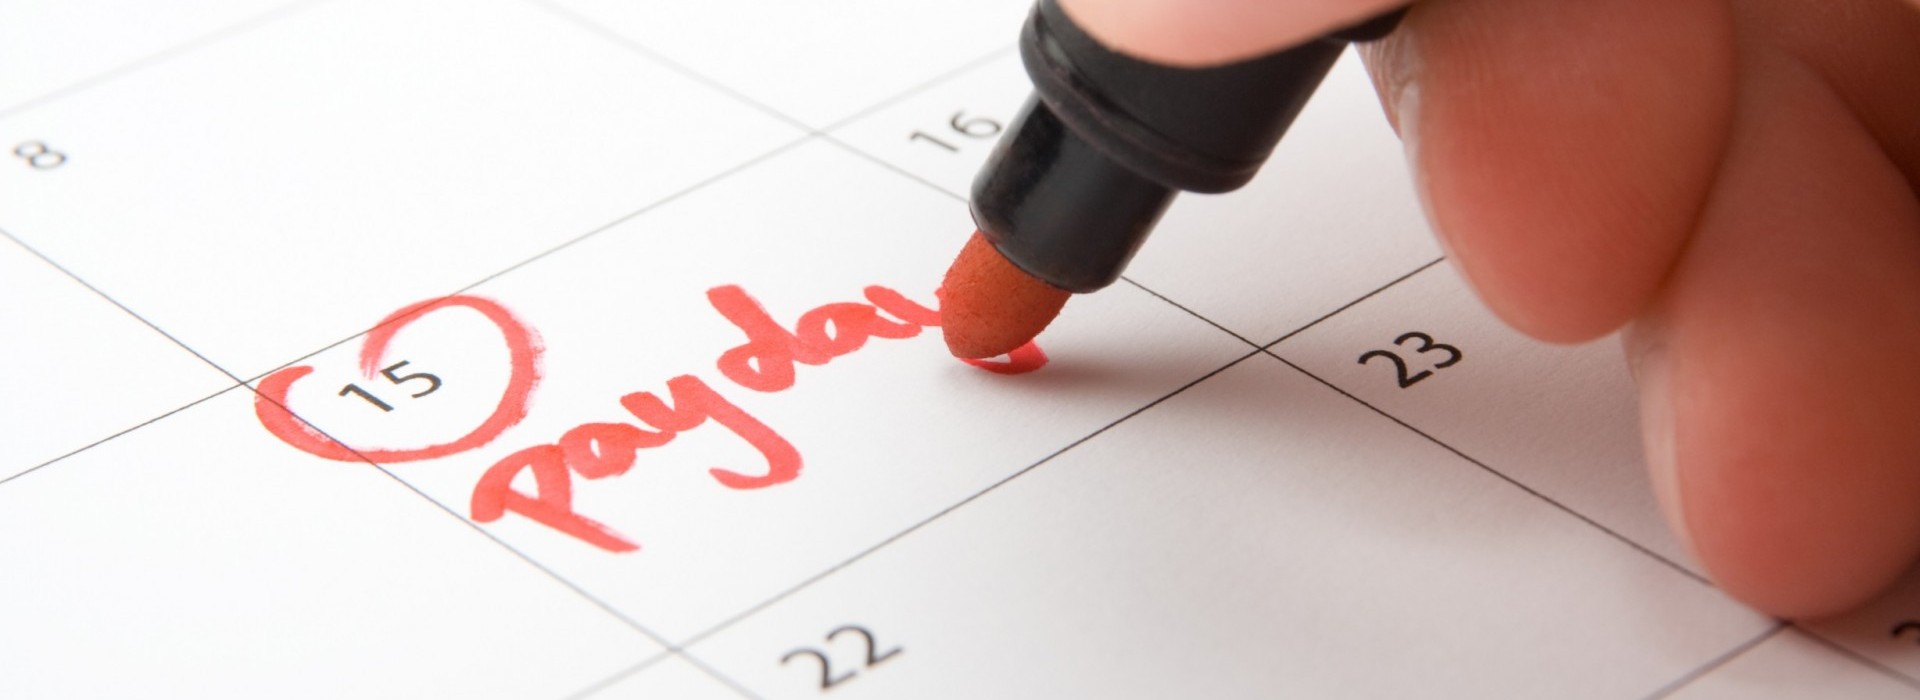 8
16
15
payday
23
22